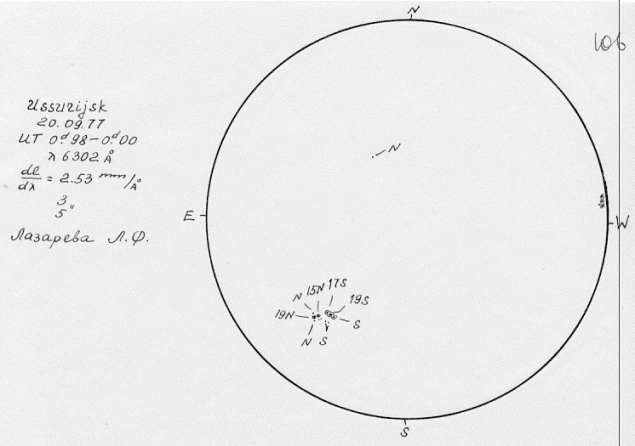 N
106
Ussurijsk
20.09.77
UT 0ᵈ.98–0ᵈ.00
λ 6302 Å
dl/dλ = 2.53 mm/Å
3
5"
Лазарева Л.Ф.
N
E
W
N 15N 17S
19S
19N
S
N S
S